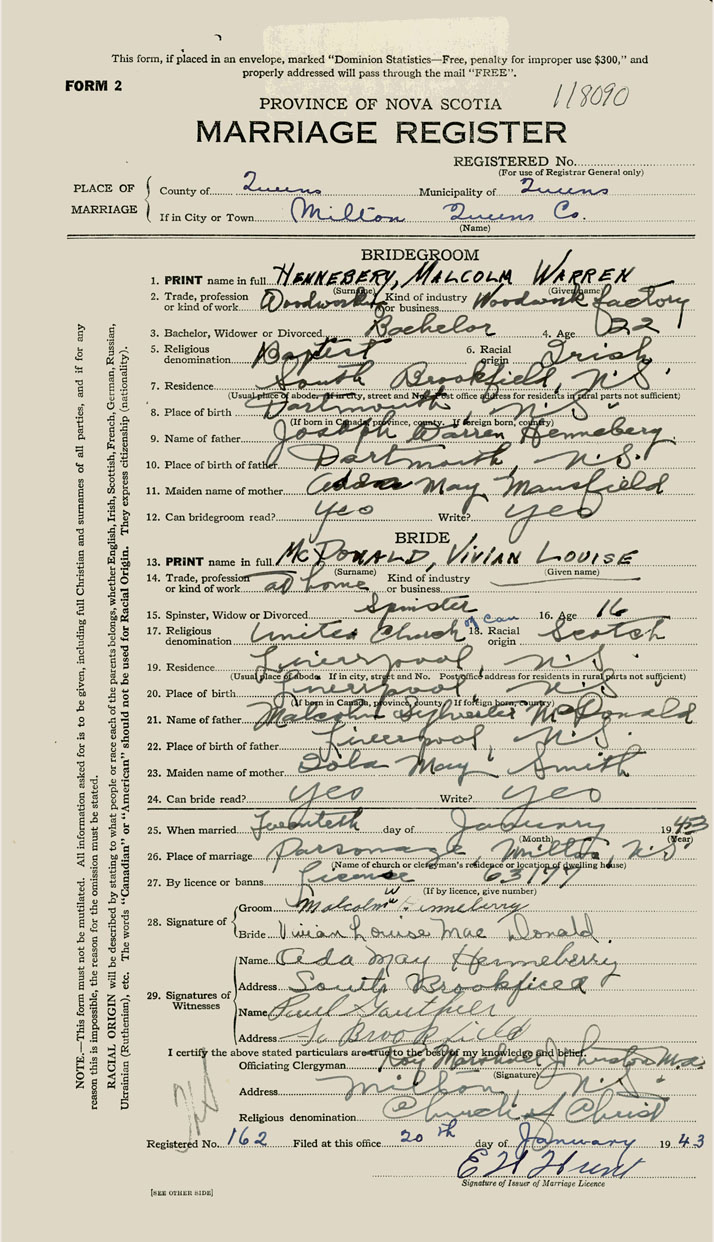 This form, if placed in an envelope, marked "Dominion Statistics—Free, penalty for improper use $300," and
properly addressed will pass through the mail "FREE".
FORM 2
118090
PROVINCE OF NOVA SCOTIA
MARRIAGE REGISTER
REGISTERED No.
(For use of Registrar General only)
PLACE OF MARRIAGE
County of Queens Municipality of Queens
If in City or Town Milton Queens Co.
(Name)
BRIDEGROOM
1. PRINT name in full HENNEBERY, MALCOLM WARREN
(Surname) (Given name)
2. Trade, profession or kind of work Woodworking Kind of industry or business Woodwork factory
3. Bachelor, Widower or Divorced Bachelor 4. Age 22
5. Religious denomination Baptist 6. Racial origin Irish
7. Residence South Brookfield, N.S.
(Usual place of abode. If in city, street and No. Post office address for residents in rural parts not sufficient)
8. Place of birth Dartmouth, N.S.
(If born in Canada, province, county. If foreign born, country)
9. Name of father Joseph Warren Henneberg.
10. Place of birth of father Dartmouth N.S.
11. Maiden name of mother Adda May Mansfield
12. Can bridegroom read? yes Write? yes
BRIDE
13. PRINT name in full McDONALD, VIVIAN LOUISE
(Surname) (Given name)
14. Trade, profession or kind of work at home Kind of industry or business
15. Spinster, Widow or Divorced Spinster 16. Age 16
17. Religious denomination United Church of Can 18. Racial origin Scotch
19. Residence Liverpool, N.S.
(Usual place of abode. If in city, street and No. Post office address for residents in rural parts not sufficient)
20. Place of birth Liverpool, N.S.
(If born in Canada, province, county. If foreign born, country)
21. Name of father Malcolm Sylvester McDonald
22. Place of birth of father Liverpool, N.S.
23. Maiden name of mother Iola May Smith
24. Can bride read? yes Write? yes
25. When married Twentieth day of January 1943
(Month) (Year)
26. Place of marriage Parsonage, Milton, N.S.
(Name of church or clergyman's residence or location of dwelling house)
27. By licence or banns License
(If by licence, give number)
28. Signature of
Groom Malcolm W Henneberry
Bride Vivian Louise Mac Donald.
29. Signatures of Witnesses
Name Ada May Henneberry
Address South Brookfield
Name Paul Gauthier
Address So Brookfield
I certify the above stated particulars are true to the best of my knowledge and belief.
Officiating Clergyman Roy Marshall Johnston M.A.
(Signature)
Address Milton, N.S.
Religious denomination Church of Christ
Registered No. 162 Filed at this office 20th day of January 1943
E H Hunt
Signature of Issuer of Marriage Licence
[SEE OTHER SIDE]
NOTE.—This form must not be mutilated. All information asked for is to be given, including full Christian and surnames of all parties, and if for any
reason this is impossible, the reason for the omission must be stated.
RACIAL ORIGIN will be described by stating to what people or race each of the parents belongs, whether English, Irish, Scottish, French, German, Russian,
Ukrainian (Ruthenian), etc. The words "Canadian" or "American" should not be used for Racial Origin. They express citizenship (nationality).